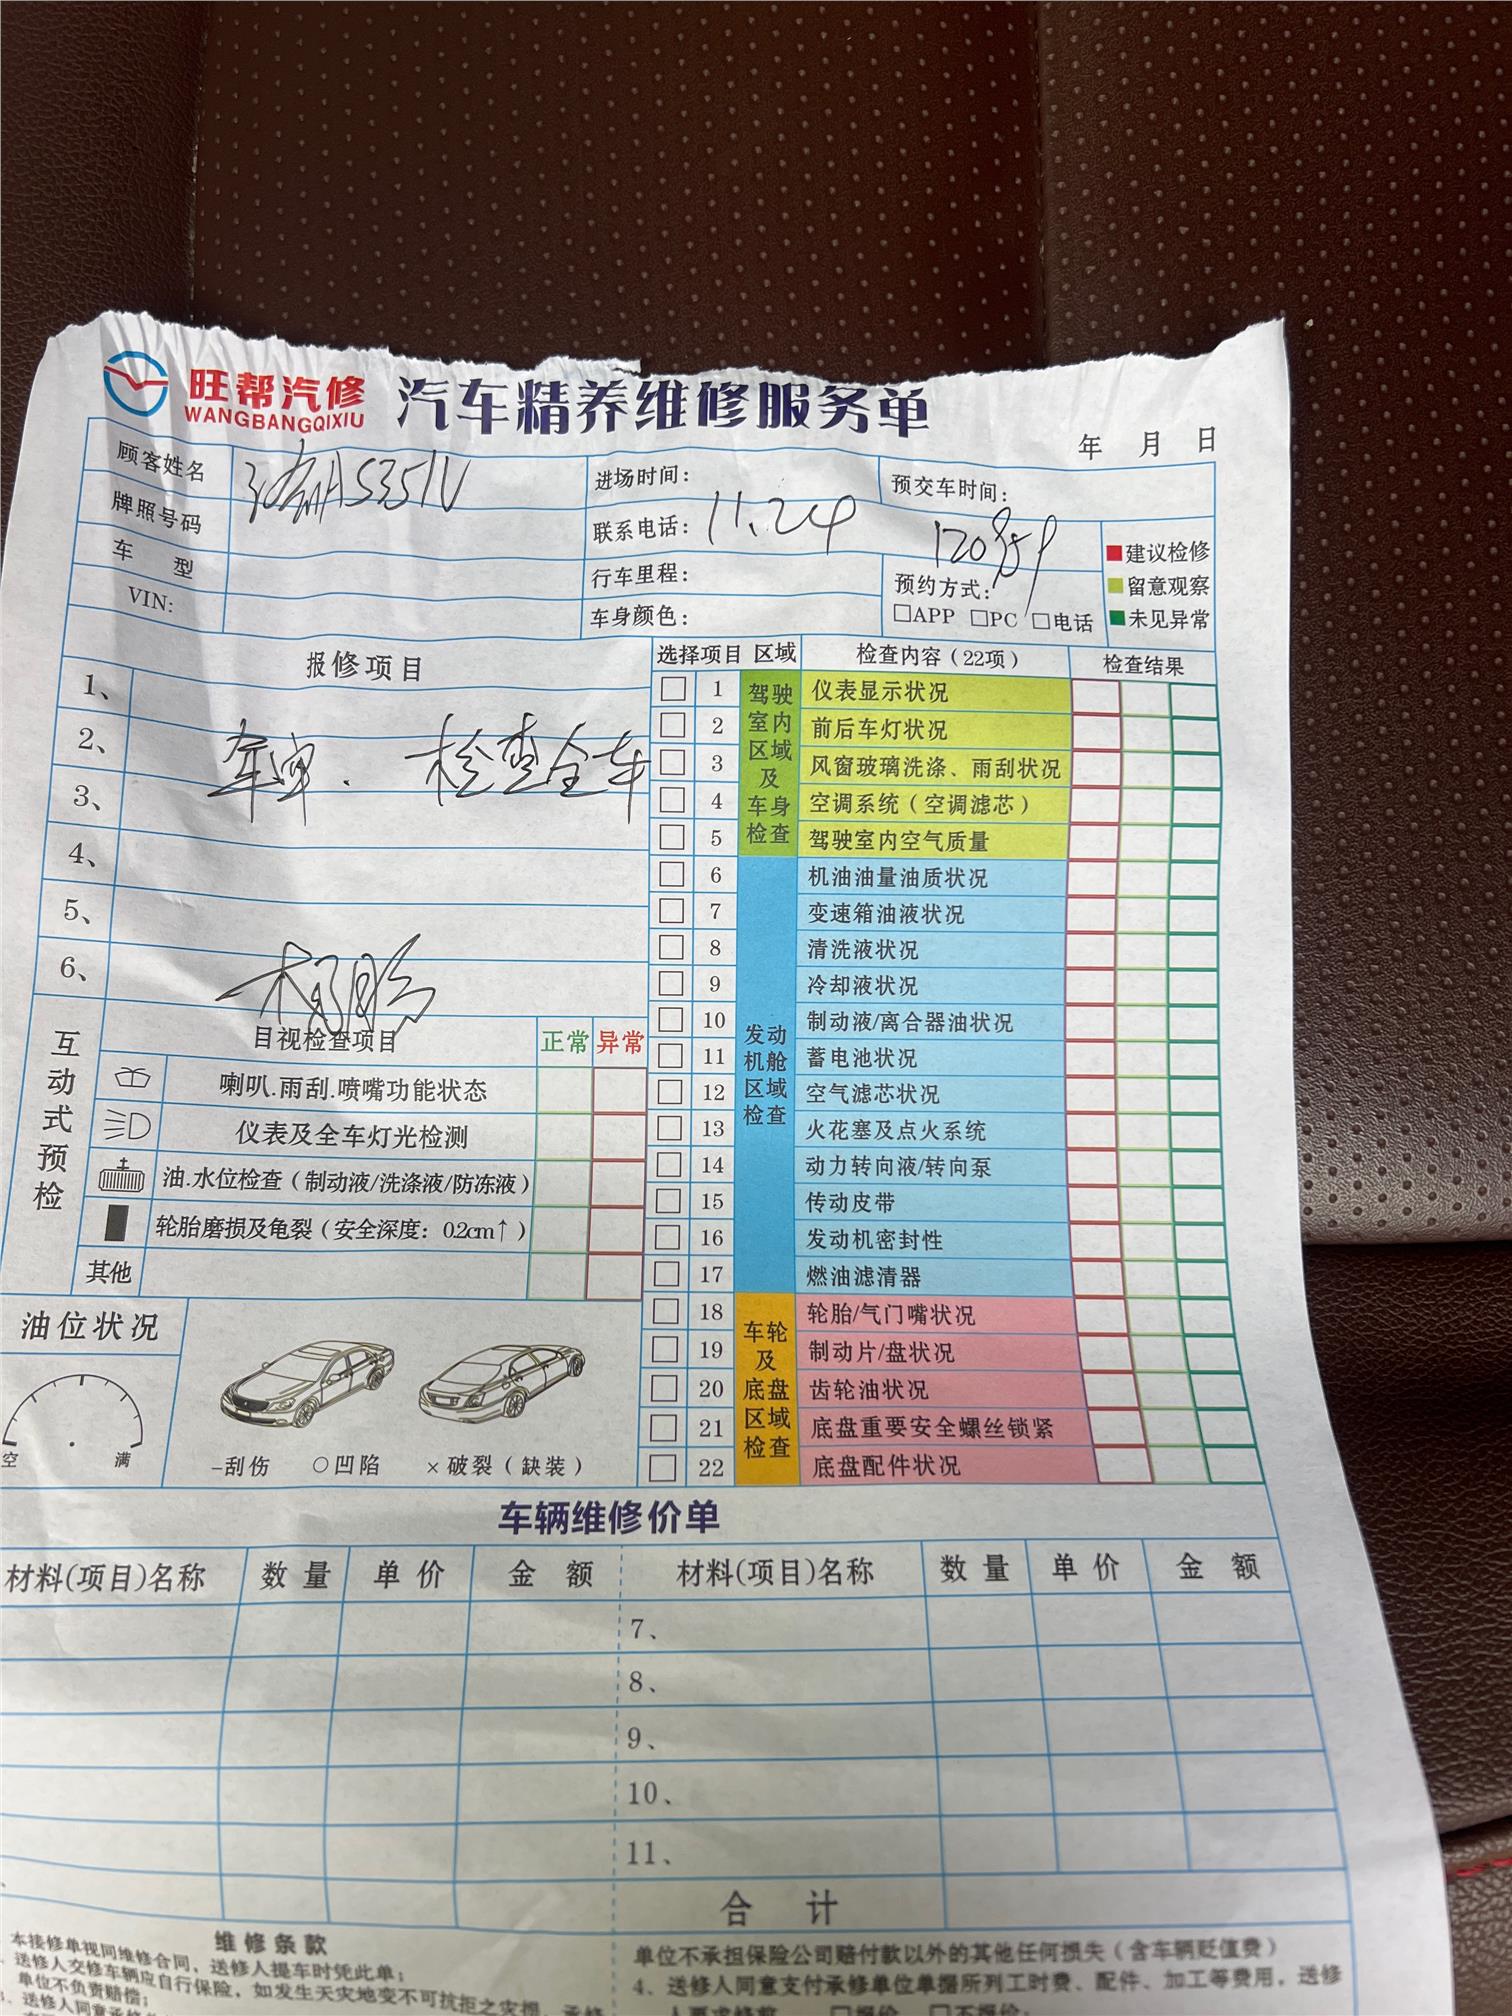 旺帮汽修 汽车精养维修服务单
WANGBANGQIXIU
年 月 日
顾客姓名 A5351V
进场时间:
预交车时间:
牌照号码
联系电话: 11.24
建议检修
车 型
行车里程:
预约方式:
留意观察
VIN:
车身颜色:
□APP □PC □电话
未见异常
报修项目
选择项目 区域 检查内容(22项) 检查结果
1、
2、
年审. 检查全车
3、
4、
5、
6、
杨鹏
驾驶室内区域及车身检查
1 仪表显示状况
2 前后车灯状况
3 风窗玻璃洗涤、雨刮状况
4 空调系统(空调滤芯)
5 驾驶室内空气质量
发动机舱区域检查
6 机油油量油质状况
7 变速箱油液状况
8 清洗液状况
9 冷却液状况
10 制动液/离合器油状况
11 蓄电池状况
12 空气滤芯状况
13 火花塞及点火系统
14 动力转向液/转向泵
15 传动皮带
16 发动机密封性
17 燃油滤清器
车轮及底盘区域检查
18 轮胎/气门嘴状况
19 制动片/盘状况
20 齿轮油状况
21 底盘重要安全螺丝锁紧
22 底盘配件状况
互动式预检
目视检查项目 正常 异常
喇叭.雨刮.喷嘴功能状态
仪表及全车灯光检测
油.水位检查(制动液/洗涤液/防冻液)
轮胎磨损及龟裂(安全深度: 0.2cm↑)
其他
油位状况
空 满
–刮伤 ○凹陷 ×破裂(缺装)
车辆维修价单
材料(项目)名称 数量 单价 金额 材料(项目)名称 数量 单价 金额
7、
8、
9、
10、
11、
合 计
维修条款
本接修单视同维修合同,送修人提车时凭此单;
送修人交修车辆应自行保险,如发生天灾地变不可抗拒之灾损,承修
单位不负责赔偿;
单位不承担保险公司赔付款以外的其他任何损失(含车辆贬值费)
4、送修人同意支付承修单位单据所列工时费、配件、加工等费用,送修